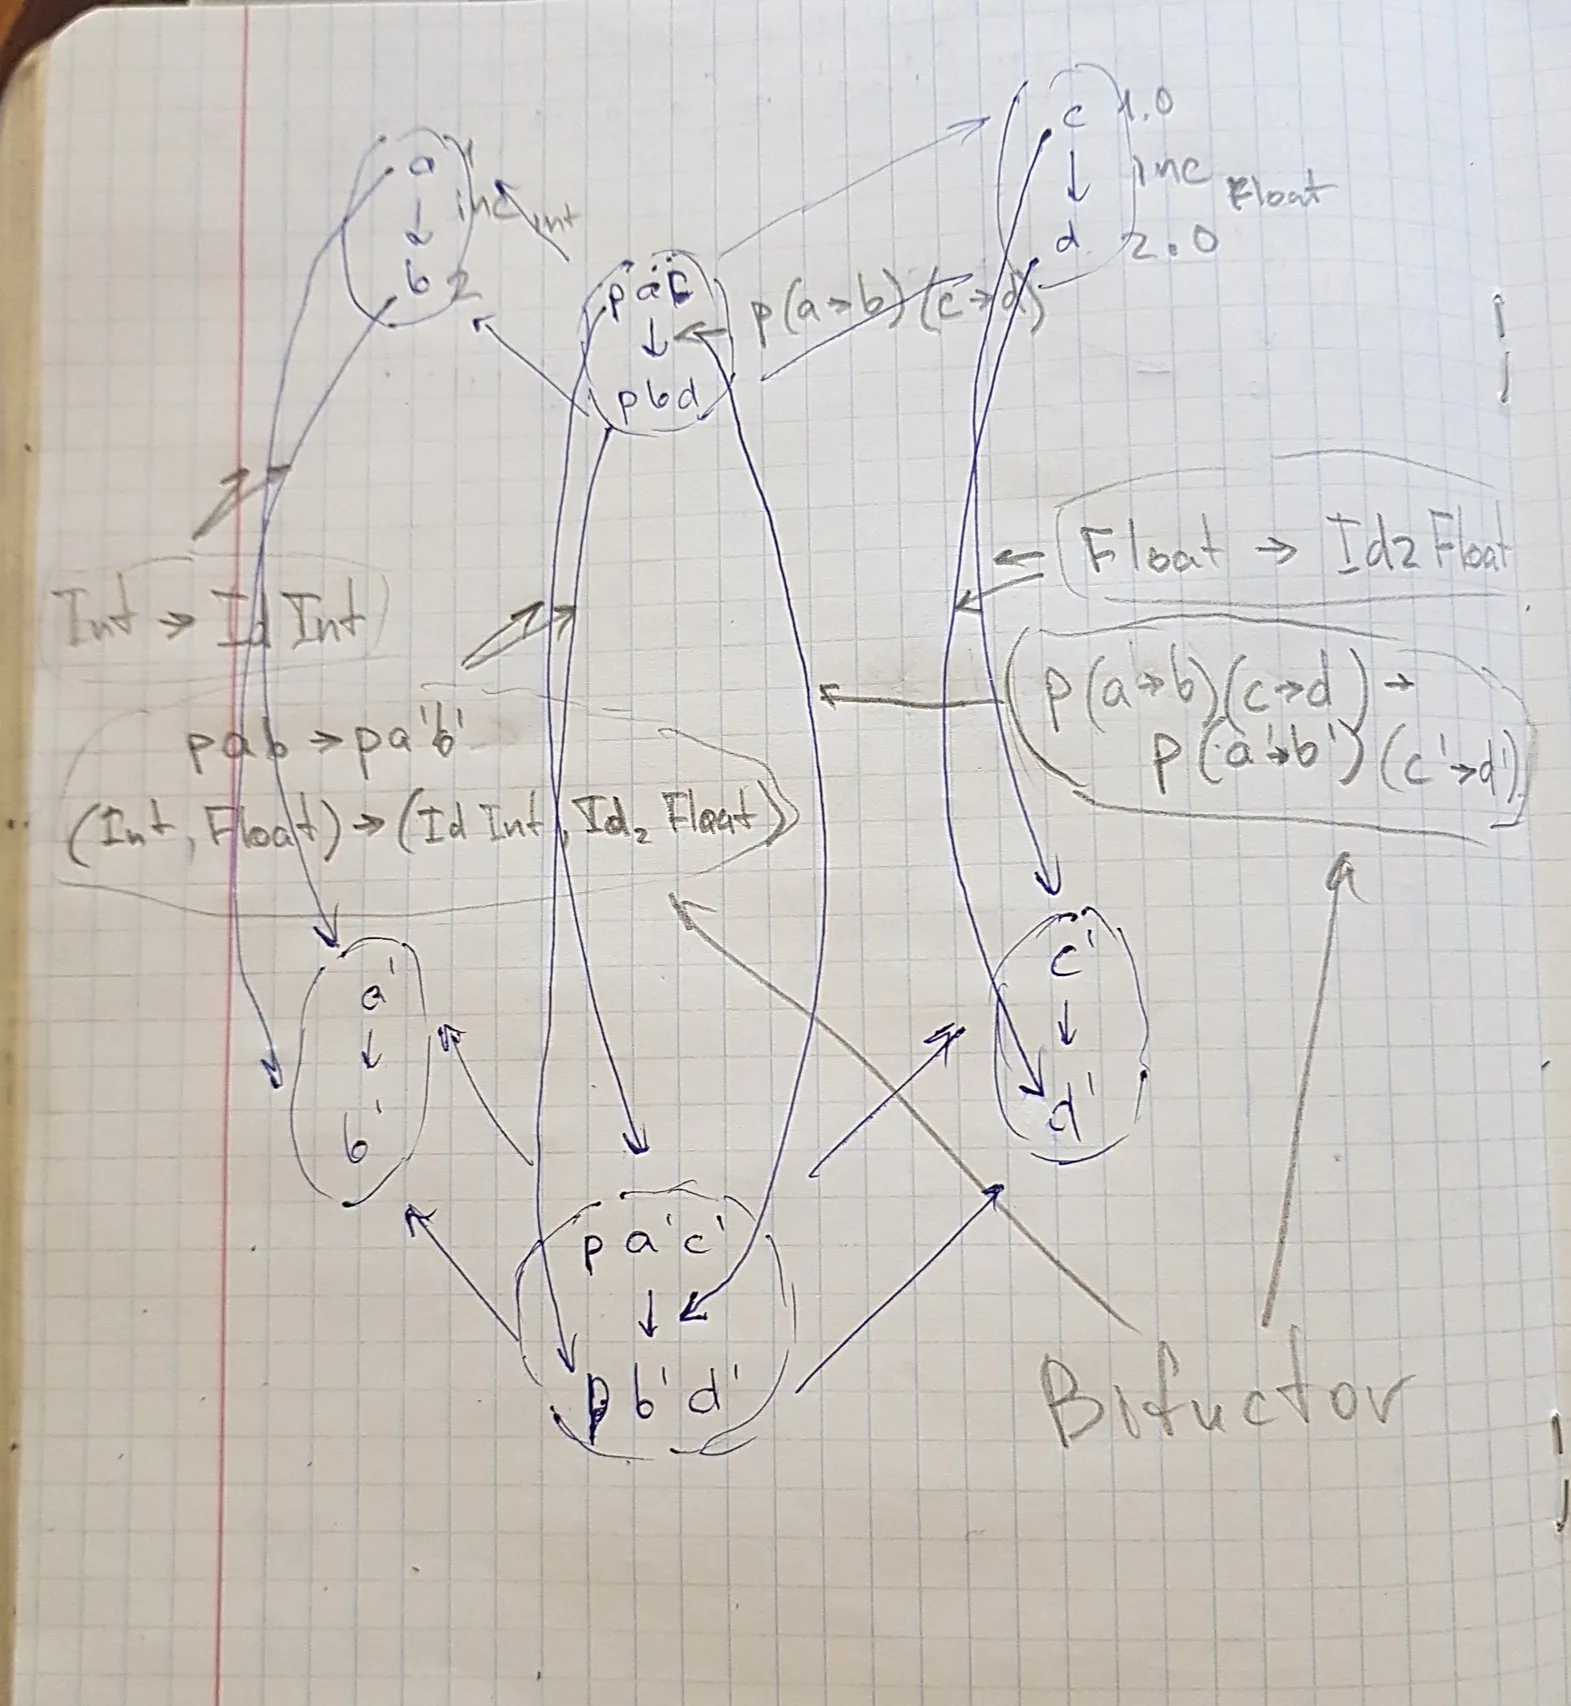 c 1.0
a 1
inc Float
inc Int
d 2.0
b 2
p a c
p(a→b)(c→d)
p b d
Float → Id2 Float
Int → Id Int
p(a→b)(c→d) →
p(a'→b')(c'→d')
p a b → p a' b'
(Int, Float) → (Id Int, Id₂ Float)
c'
a'
d'
b'
p a' c'
p b' d'
Bifuctor